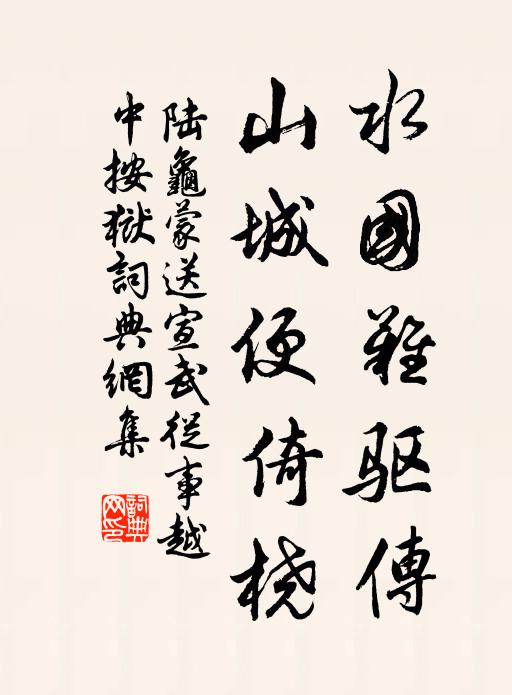 水國難驱傳
山城便倚桡
陆龜蒙送宣武從事越
中按獄詞典網集
詞典
网印